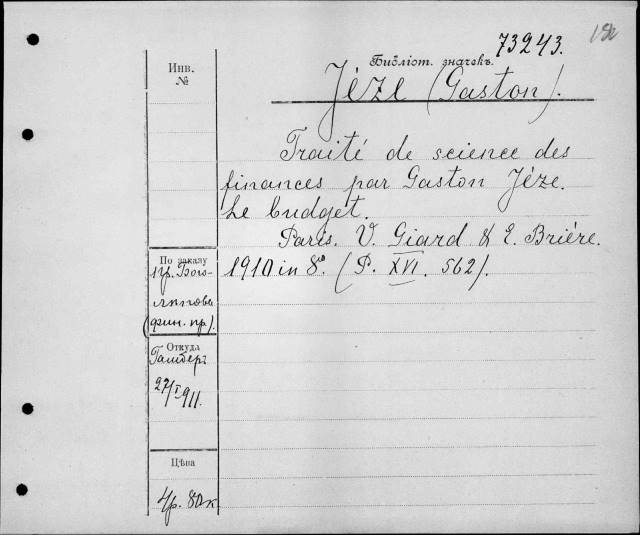 73243.
Инв.
№
Библіот. значекъ.
Jèze (Gaston).
Traité de science des
finances par Gaston Jèze.
Le budget.
Paris. V. Giard & E. Brière.
1910 in 8°. (P. XVI. 562).
По заказу
пр. Бого-
лѣпова
(фин. пр).
Откуда
Гамберъ
27/I 911.
Цѣна
4р. 80к